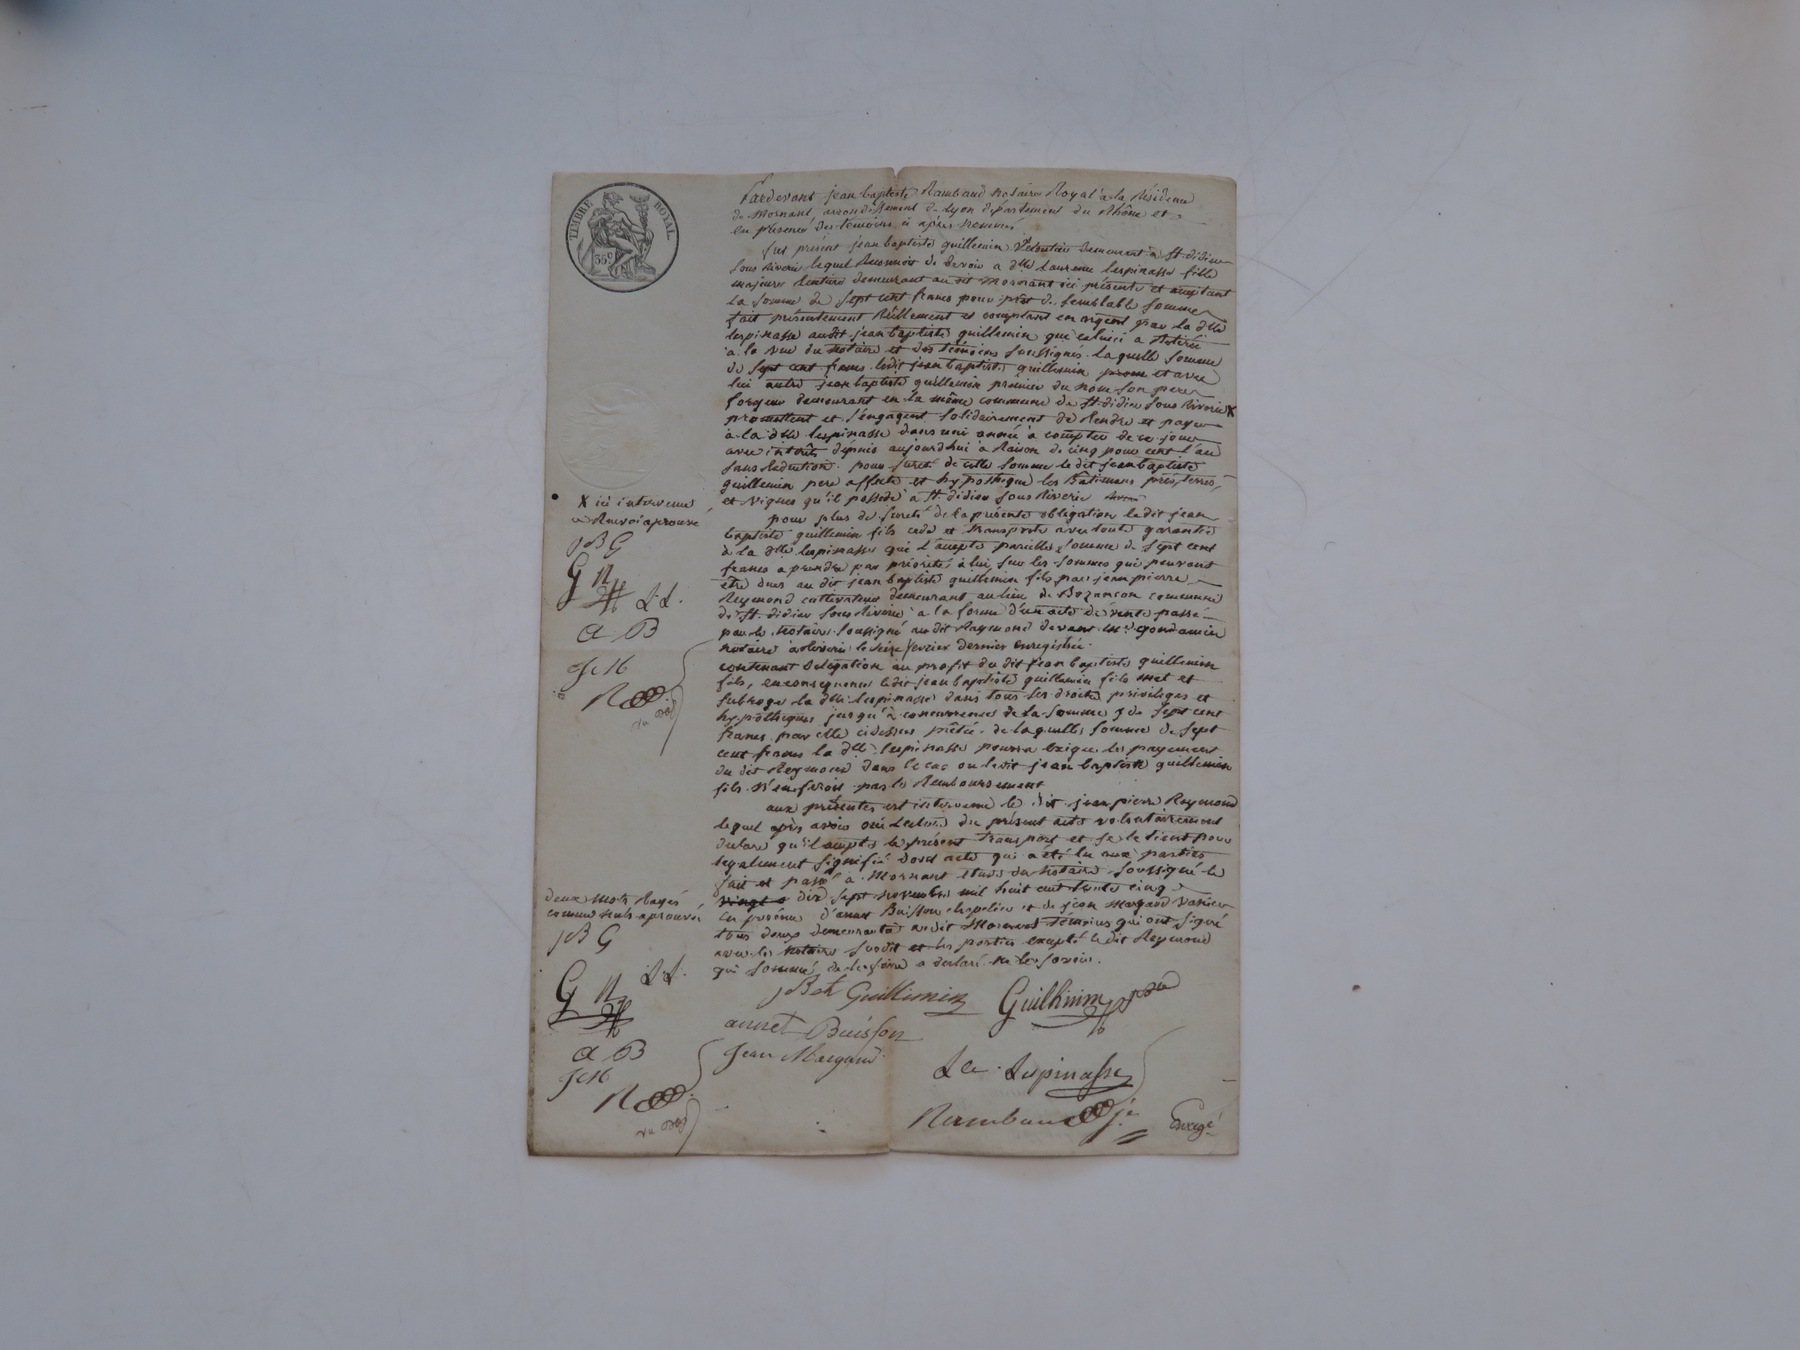 TIMBRE ROYAL
35 c
Pardevant jean baptiste Rambaud notaire Royal à la Résidence
de Mornant, arrondissement de Lyon département du Rhône et
en présence des témoins ci après nommés
fut présent jean baptiste guillemin demeurant à St didier
sous Riverie lequel Reconnoit de devoir a dlle Laurence lespinasse fille
majeure Rentiere demeurant au dit Mornant ici présente et acceptant
la somme de sept cent francs pour prêt de semblable somme
fait présentement Réellement et comptant en argent par la dlle
lespinasse audit jean baptiste guillemin que celuici a Retirée
à la vue du notaire et des témoins soussignés. laquelle somme
de sept cent francs ledit jean baptiste guillemin et avec
lui autre jean baptiste guillemin premier du nom son pere
forgeur demeurant en la même commune de St didier sous Riverie X
promettent et s'engagent solidairement de Rendre et payer
à la dlle lespinasse dans une année à compter de ce jour
avec intérêts dépuis aujourdhui à Raison de cinq pour cent l'an
sans Reduction. pour sureté de cette somme le dit jean baptiste
guillemin pere affecte et hypothèque les Bâtimens prés, terres,
et vignes qu'il possede à St didier sous Riverie
pour plus de sureté de la présente obligation ledit jean
baptiste guillemin fils cede et transporte avec toute garantie
à la dlle lespinasse qui l'accepte pareille somme de sept cent
francs a prendre par priorité à lui sur les sommes qui peuvent
être dues au dit jean baptiste guillemin fils par jean pierre
Reymond cultivateur demeurant au lieu de Bozançon commune
de St didier sous Riverie à la forme d'un acte de vente passé
par le notaire soussigné au dit Raymond devant Me gondamin
notaire à Riverie le seize fevrier dernier enregistré
contenant Delégation au profit du dit jean baptiste guillemin
fils, en consequence ledit jean baptiste guillemin fils met et
subroge la dlle lespinasse dans tous ses droits privileges et
hypothèques jusqu'à concurrence de la somme de sept cent
francs par elle cidessus prêtée. de laquelle somme de sept
cent francs la dlle lespinasse pourra exiger le payement
du dit Reymond dans le cas ou ledit jean baptiste guillemin
fils n'en feroit pas le Remboursement
aux présentes est intervenu le dit jean pierre Raymond
lequel après avoir oui lecture du présent acte volontairement
declare qu'il accepte le présent transport et se le tient pour
legalement signifié dont acte qui a été lu aux parties
fait et passé à Mornant etude du notaire soussigné le
vingt dix sept novembre mil huit cent trente cinq
en presence d'annet Buisson chapelier et de jean Margand
tous deux demeurants audit Mornant témoins qui ont signé
avec le notaire susdit et les parties excepté ledit Reymond
qui sommé de le faire a declaré ne le savoir.
jBt Guillemin Guillemin pere
annet Buisson
Jean Margand
Le Lespinasse
Rambaud
Enregé
X ici intervenu
Renvoi aprouvé
jBG
G
LL.
a B
R
deux mots Rayés
comme nuls aprouvé
jB G
G
LL.
a B
R